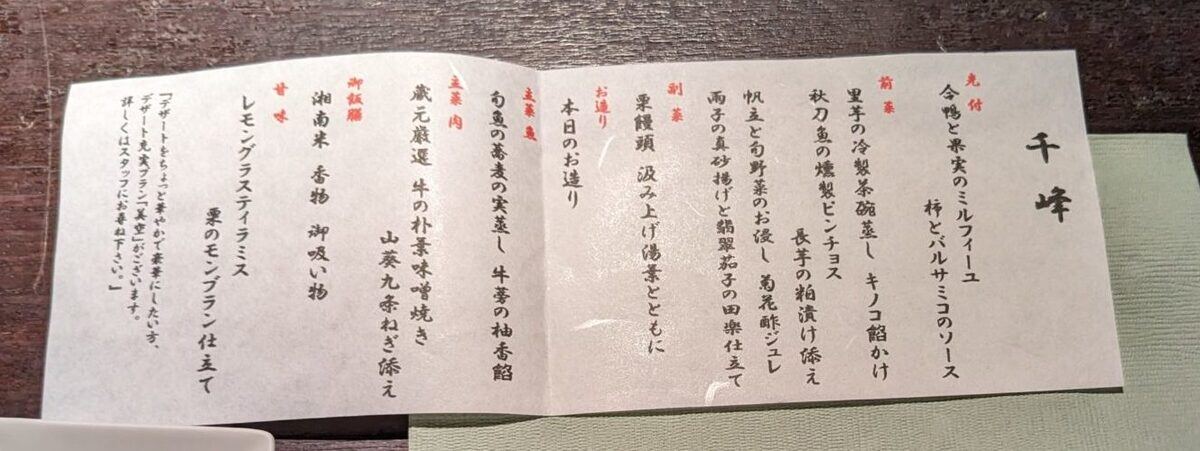 千峰
先付
合鴨と果実のミルフィーユ
柿とバルサミコのソース
前菜
里芋の冷製茶碗蒸し キノコ餡かけ
秋刀魚の燻製ピンチョス
長芋の粕漬け添え
帆立と旬野菜のお浸し 菊花酢ジュレ
雨子の真砂揚げと翡翠茄子の田楽仕立て
副菜
栗饅頭 汲み上げ湯葉とともに
お造り
本日のお造り
主菜 魚
旬魚の蕎麦の実蒸し 牛蒡の柚香餡
主菜 肉
蔵元厳選 牛の朴葉味噌焼き
山葵九条ねぎ添え
御飯膳
湘南米 香物 御吸い物
甘味
レモングラスティラミス
栗のモンブラン仕立て
「デザートをちょっと華やかで豪華にしたい方、
デザート充実プラン「美空」がございます。
詳しくはスタッフにお尋ね下さい。」